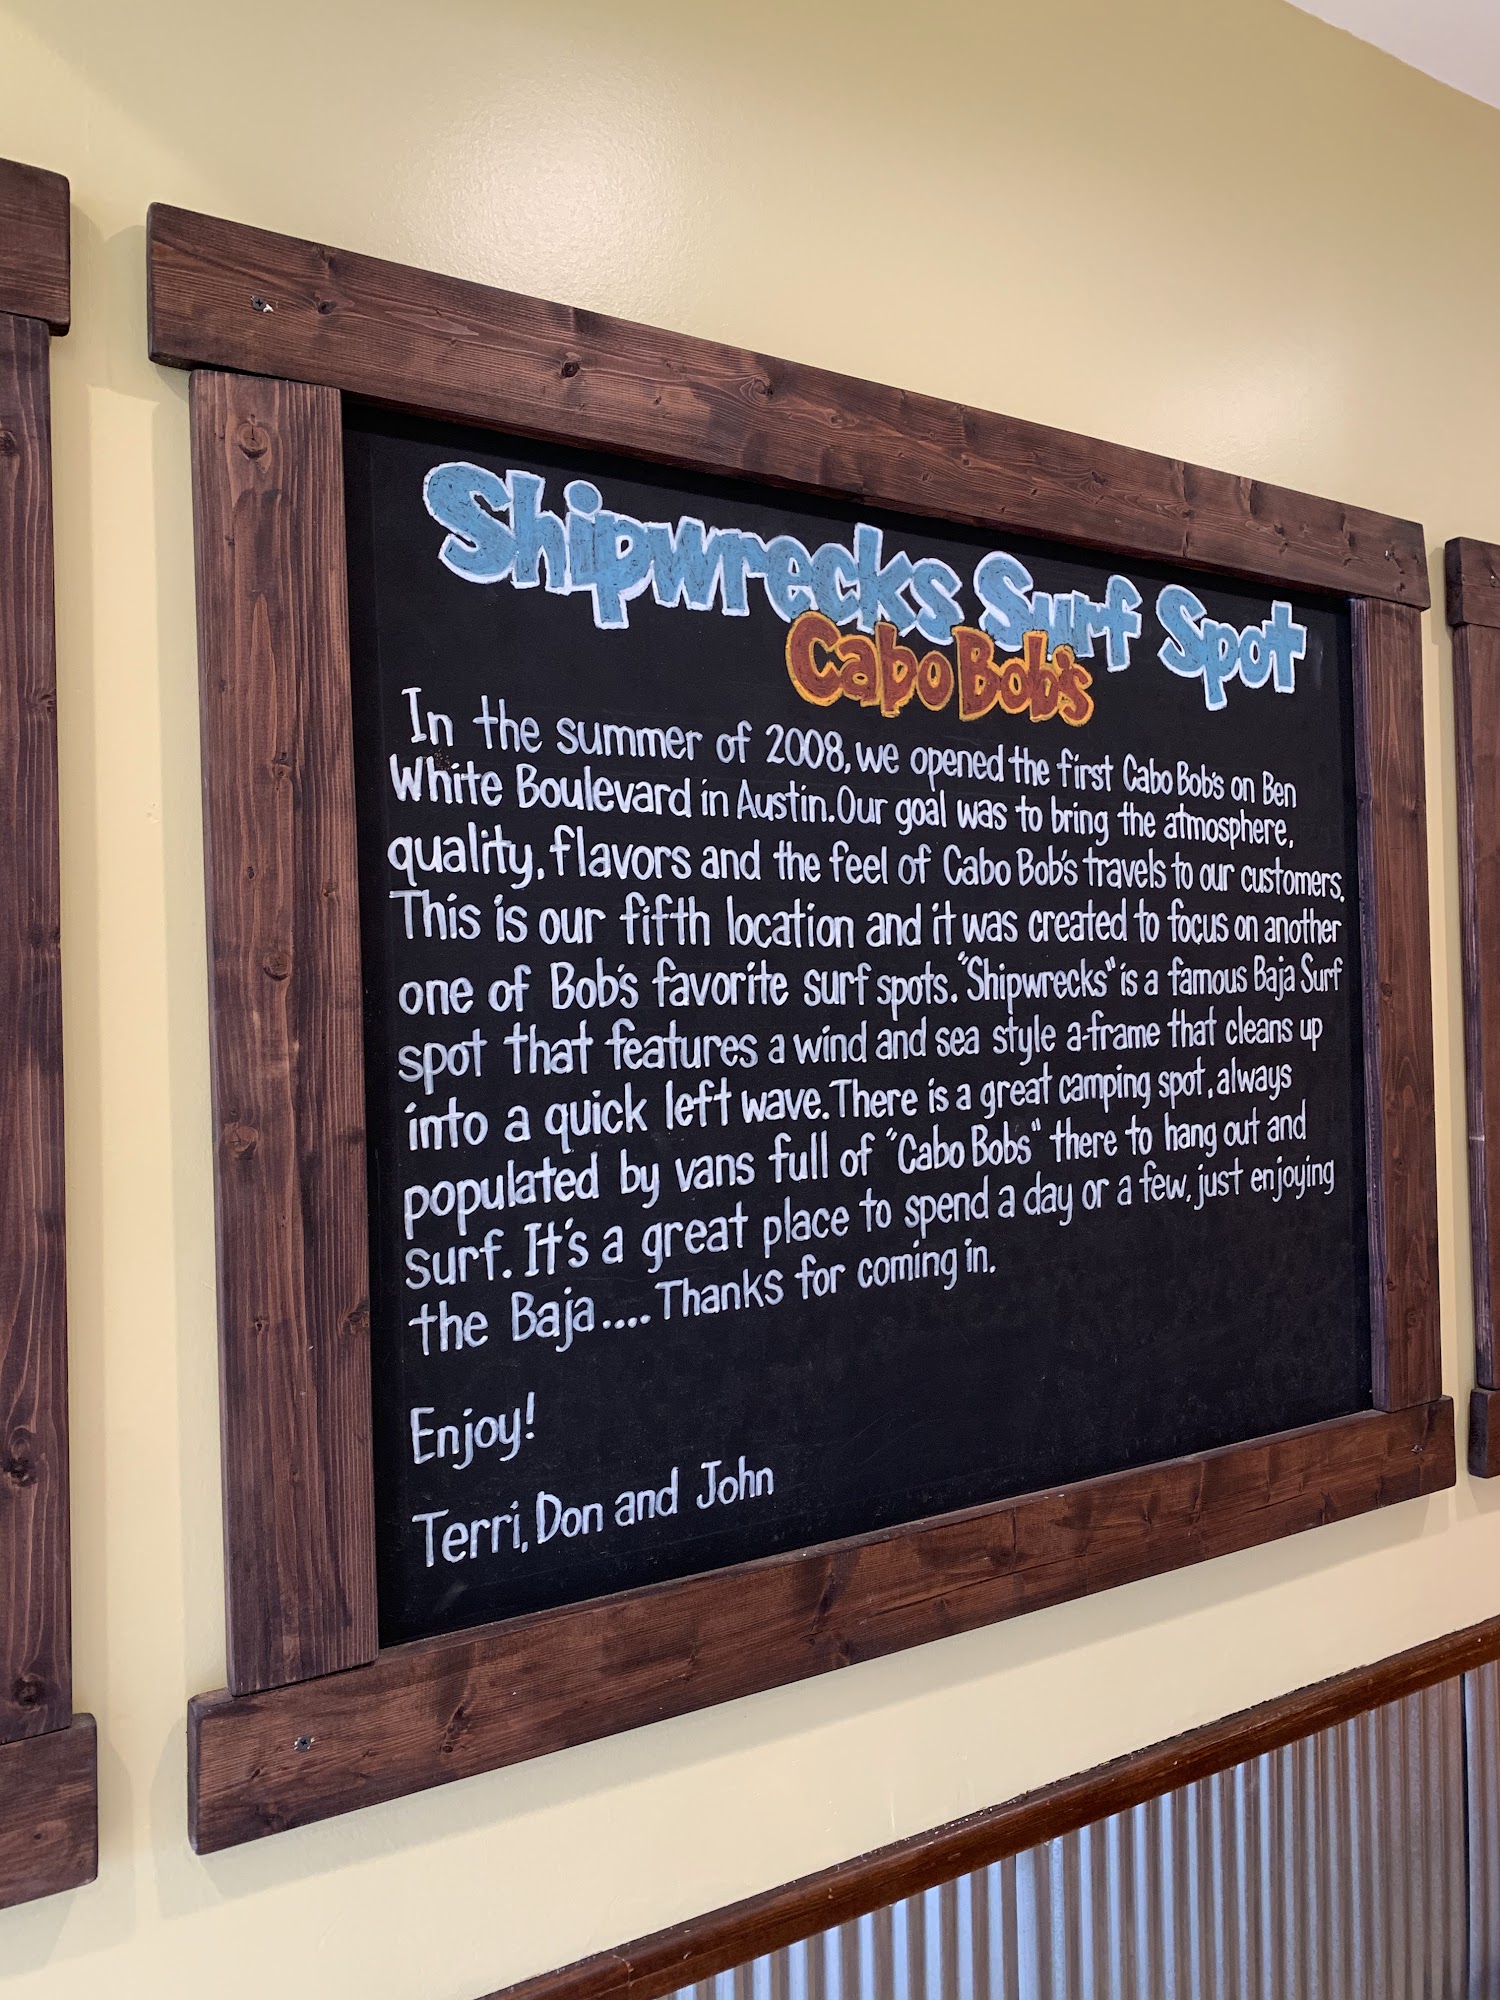 Shipwrecks Surf Spot
Cabo Bob's
In the summer of 2008, we opened the first Cabo Bob's on Ben
White Boulevard in Austin. Our goal was to bring the atmosphere,
quality, flavors and the feel of Cabo Bob's travels to our customers.
This is our fifth location and it was created to focus on another
one of Bob's favorite surf spots. "Shipwrecks" is a famous Baja Surf
spot that features a wind and sea style a-frame that cleans up
into a quick left wave. There is a great camping spot, always
populated by vans full of "Cabo Bobs" there to hang out and
surf. It's a great place to spend a day or a few, just enjoying
the Baja.... Thanks for coming in.
Enjoy!
Terri, Don and John